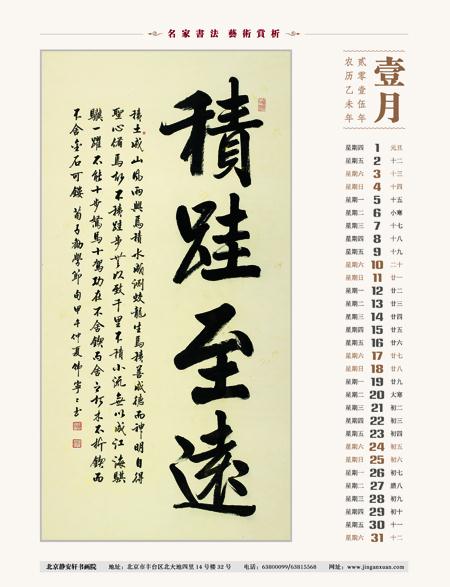 名家書法 藝術賞析
積跬至遠
積土成山風雨興焉積水成淵蛟龍生焉積善成德而神明自得
聖心備焉故不積跬步無以致千里不積小流無以成江海騏
驥一躍不能十步駑馬十駕功在不舍鍥而舍之朽木不折鍥而
不舍金石可鏤 荀子勸學節句甲午仲夏
壹月
貳零壹伍年
农历乙未年
星期四 1 元旦
星期五 2 十二
星期六 3 十三
星期日 4 十四
星期一 5 十五
星期二 6 小寒
星期三 7 十七
星期四 8 十八
星期五 9 十九
星期六 10 二十
星期日 11 廿一
星期一 12 廿二
星期二 13 廿三
星期三 14 廿四
星期四 15 廿五
星期五 16 廿六
星期六 17 廿七
星期日 18 廿八
星期一 19 廿九
星期二 20 大寒
星期三 21 初二
星期四 22 初三
星期五 23 初四
星期六 24 初五
星期日 25 初六
星期一 26 初七
星期二 27 腊八
星期三 28 初九
星期四 29 初十
星期五 30 十一
星期六 31 十二
北京静安轩书画院 地址：北京市丰台区北大地四里14号楼32号 电话：63800099/63815568 网址：www.jinganxuan.com